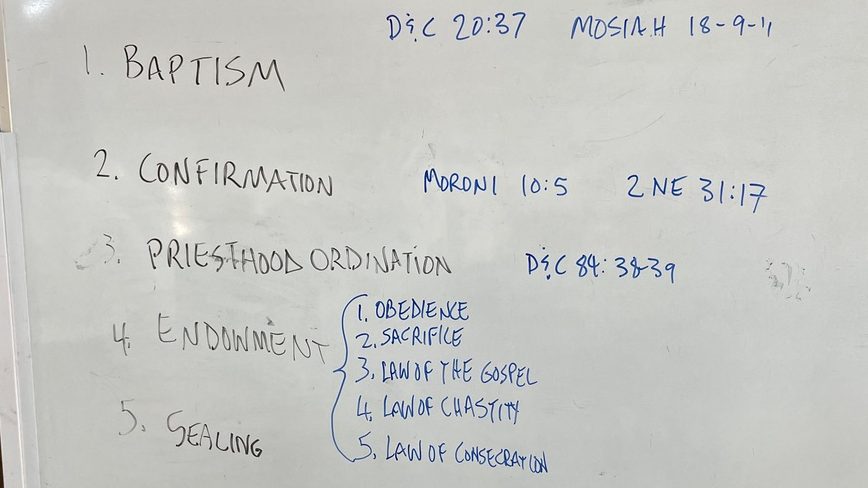 D&C 20:37 MOSIAH 18-9-11
1. BAPTISM
2. CONFIRMATION MORONI 10:5 2 NE 31:17
3. PRIESTHOOD ORDINATION D&C 84:38-39
4. ENDOWMENT
1. OBEDIENCE
2. SACRIFICE
3. LAW OF THE GOSPEL
4. LAW OF CHASTITY
5. LAW OF CONSECRATION
5. SEALING